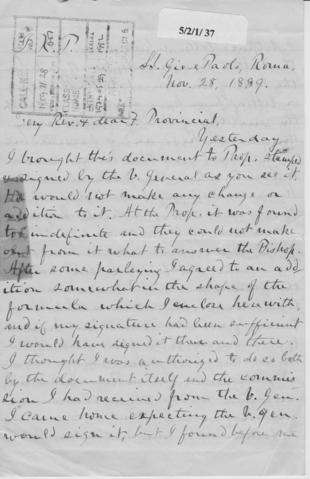 S/2/1/37
SS. Gio. e Paolo, Roma,
Nov. 28, 1889.
Very Rev. & dear F. Provincial,
Yesterday
I brought this document to Prop. stamped
& signed by the V. General as you see it.
He would not make any change or
addition to it. At the Prop. it was found
too indefinite and they could not make
out from it what to answer the Bishop.
After some parleying I agreed to an add
ition somewhat in the shape of the
formula which I enclose herewith,
and if my signature had been sufficient
I would have signed it there and there.
I thought I was authorized to do so both
by the document itself and the commis
sion I had received from the V. Gen.
I came home expecting the V. Gen.
would sign it, but I found before me